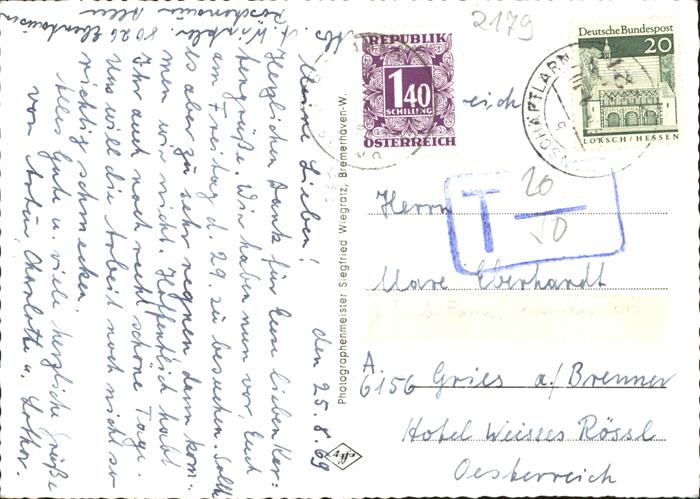 2179
REPUBLIK
1.40
SCHILLING
ÖSTERREICH
Deutsche Bundespost
20
LORSCH/HESSEN
SCHÄFTLARN
reich
T 20
50
Herrn
Marc Eberhardt
A.
6156 Gries a/Brenner
Hotel Weisses Rössl
Oesterreich
Photographenmeister Siegfried Wiegratz, Bremerhaven-W.
den 25.8.69
Meine Lieben!
Herzlichen Dank für Eure lieben Kar-
tengrüße. Wir haben nun vor, Euch
am Freitag d. 29. zu besuchen. Sollte
es aber zu sehr regnen dann kom-
men wir nicht. Hoffentlich habt
Ihr auch noch recht schöne Tage.
Uns will die Arbeit noch nicht so
richtig schmecken.
Alles Gute u. viele herzliche Grüße
von Artur, Charlotte u. Lothar.
8026 Ebenhausen